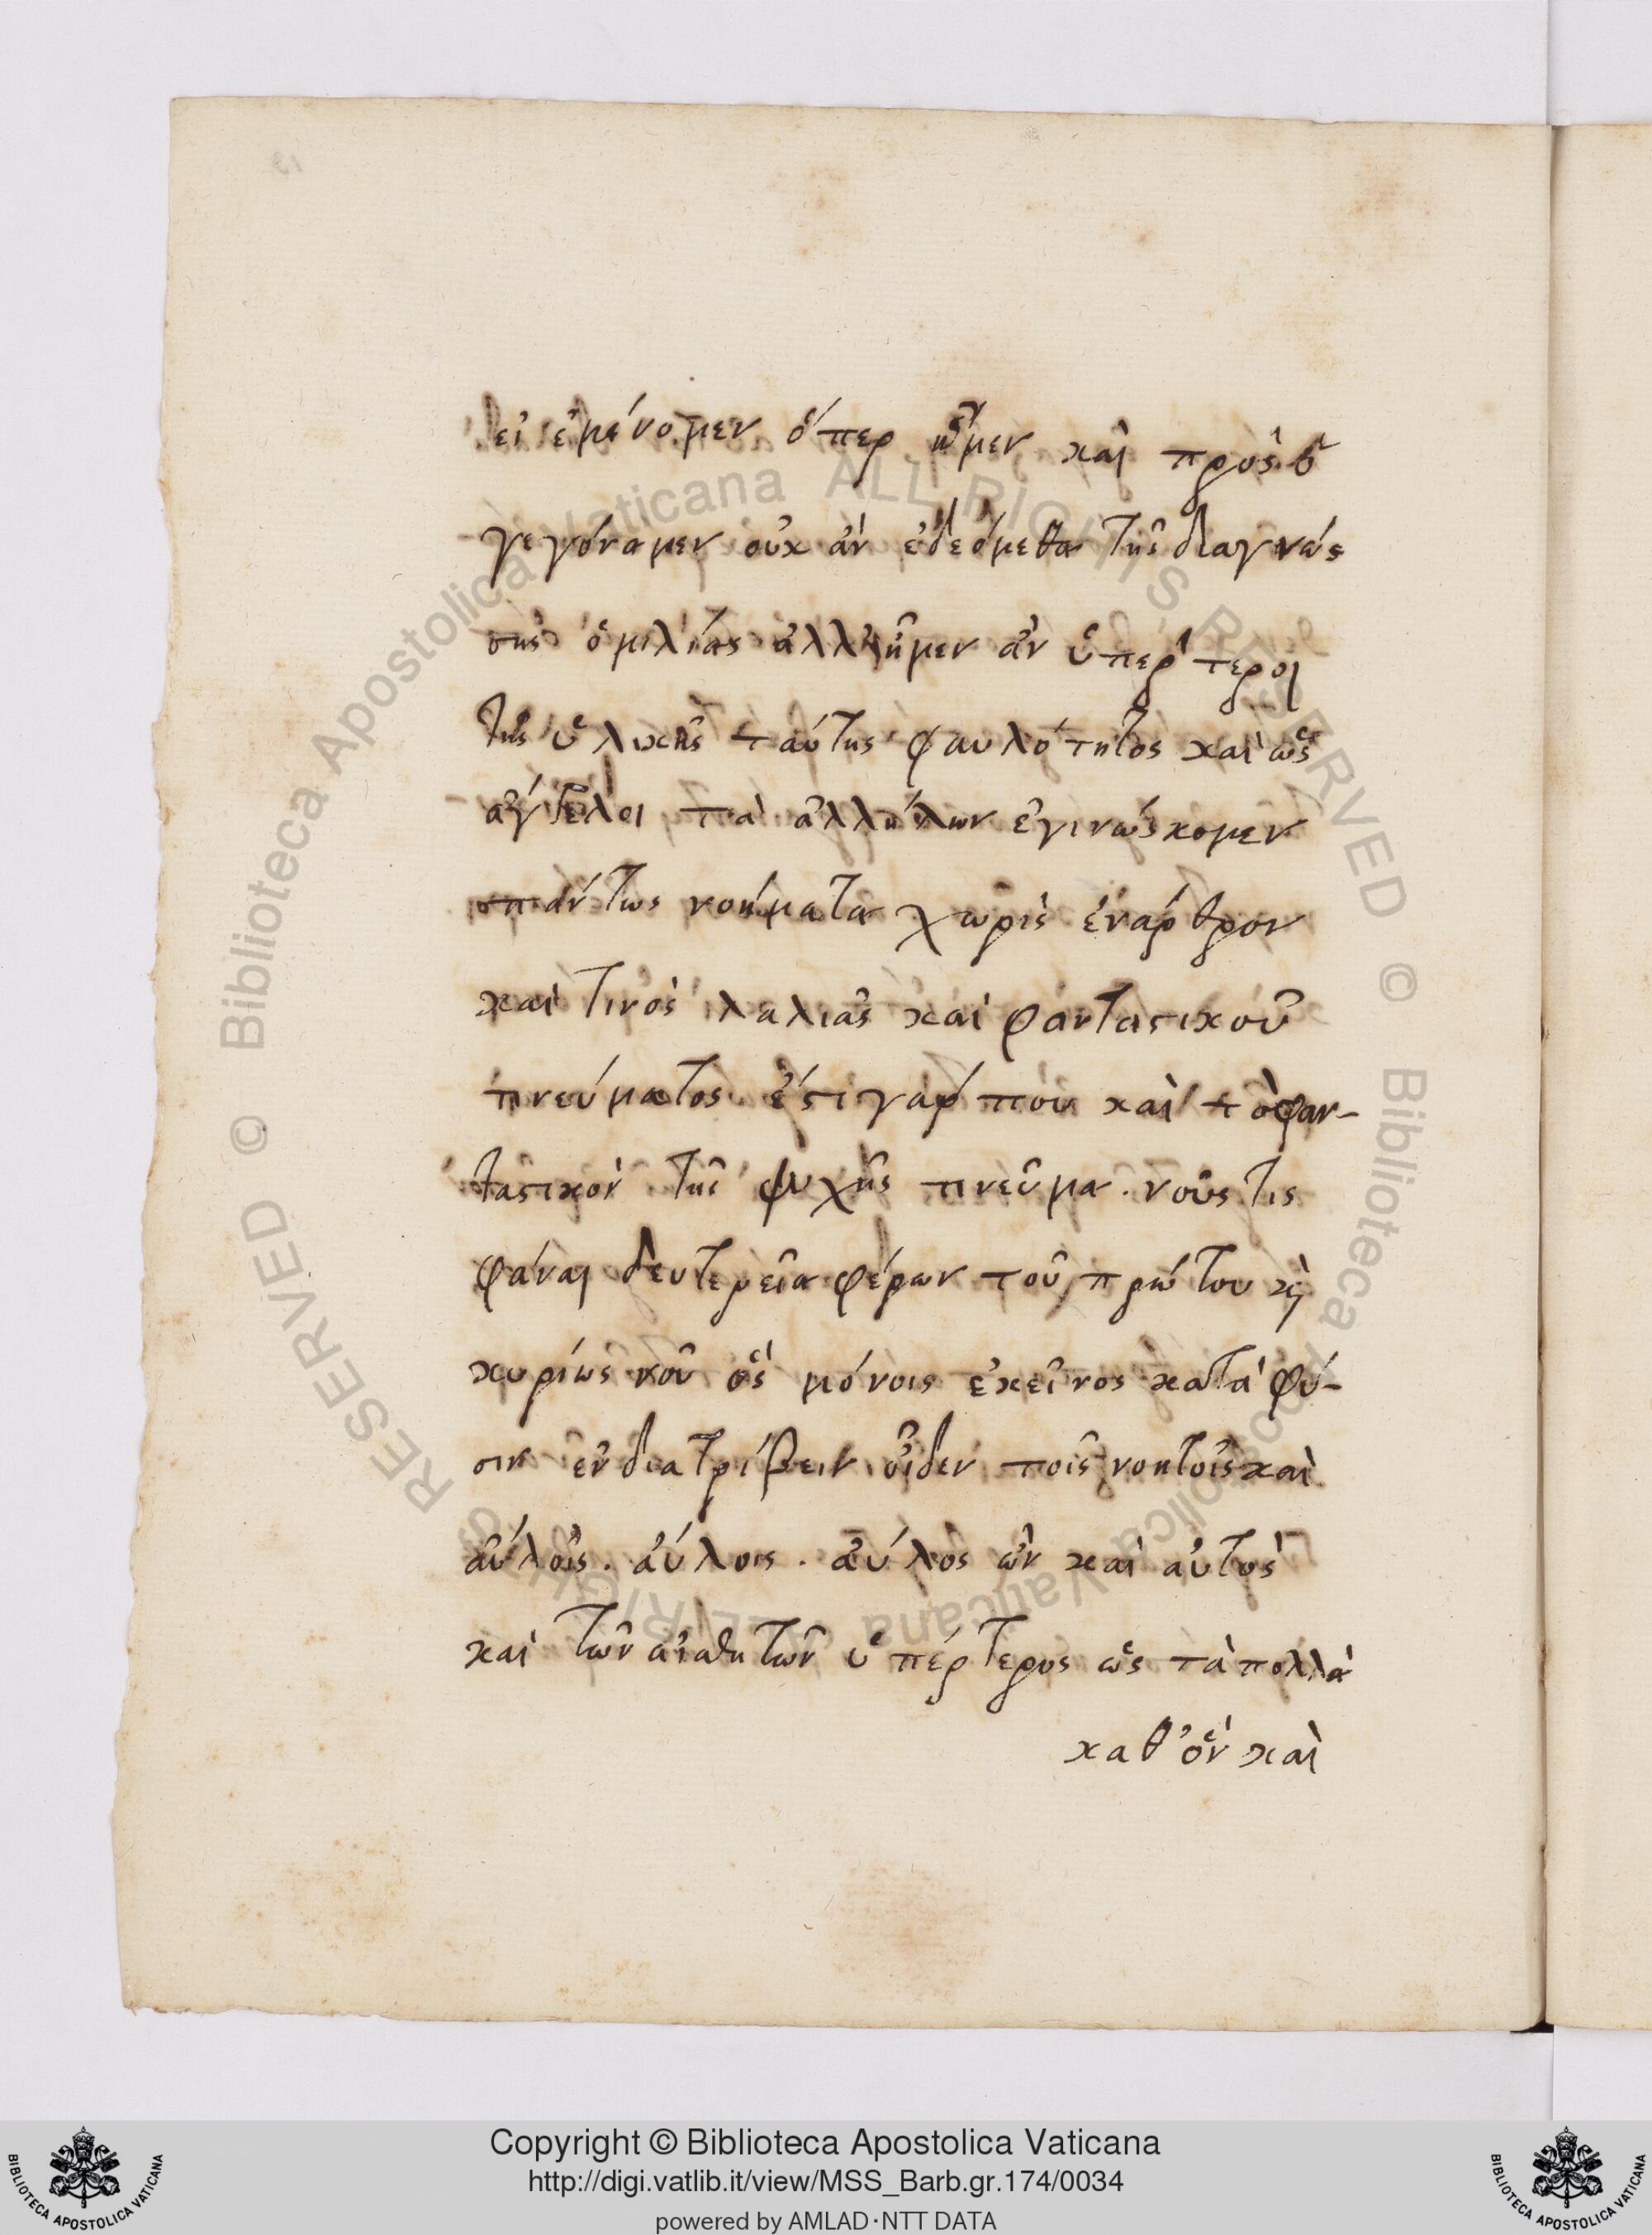 εἰ ἐμένομεν ὅπερ ἦμεν καὶ πρὸς ὃ
γεγόναμεν οὐκ ἂν ἐδεόμεθα τῆς διαγνώσ
σης ὁμιλίας ἀλλ' ἦμεν ἂν ὑπέρτεροι
τῆς ὑλικῆς ταύτης φαυλότητος καὶ ὡς
ἄγγελοι τὰ ἀλλήλων ἐγινώσκομεν
πάντως νοήματα χωρὶς ἐνάρθρου
καὶ τινὸς λαλιᾶς καὶ φανταστικοῦ
πνεύματος ἔστι γάρ που καὶ τὸ φαν-
ταστικὸν τῆς ψυχῆς πνεῦμα. νοῦς τις
φάναι δευτερεῖα φέρων τοῦ πρώτου κὶ
κυρίως νοῦ ὃς μόνοις ἐκεῖνος κατὰ φύ-
σιν ἐνδιατρίβειν οἶδεν τοῖς νοητοῖς καὶ
αὔλοις. αὔλοις. αὔλος ὢν καὶ αὐτὸς
καὶ τῶν αἰσθητῶν ὑπέρτερος ὡς τὰ πολλὰ
καθ' ὃν καὶ
© Biblioteca Apostolica Vaticana ALL RIGHTS RESERVED © Biblioteca Apostolica Vaticana ALL RIGHTS RESERVED
Copyright © Biblioteca Apostolica Vaticana
http://digi.vatlib.it/view/MSS_Barb.gr.174/0034
powered by AMLAD·NTT DATA
BIBLIOTECA APOSTOLICA VATICANA
BIBLIOTECA APOSTOLICA VATICANA